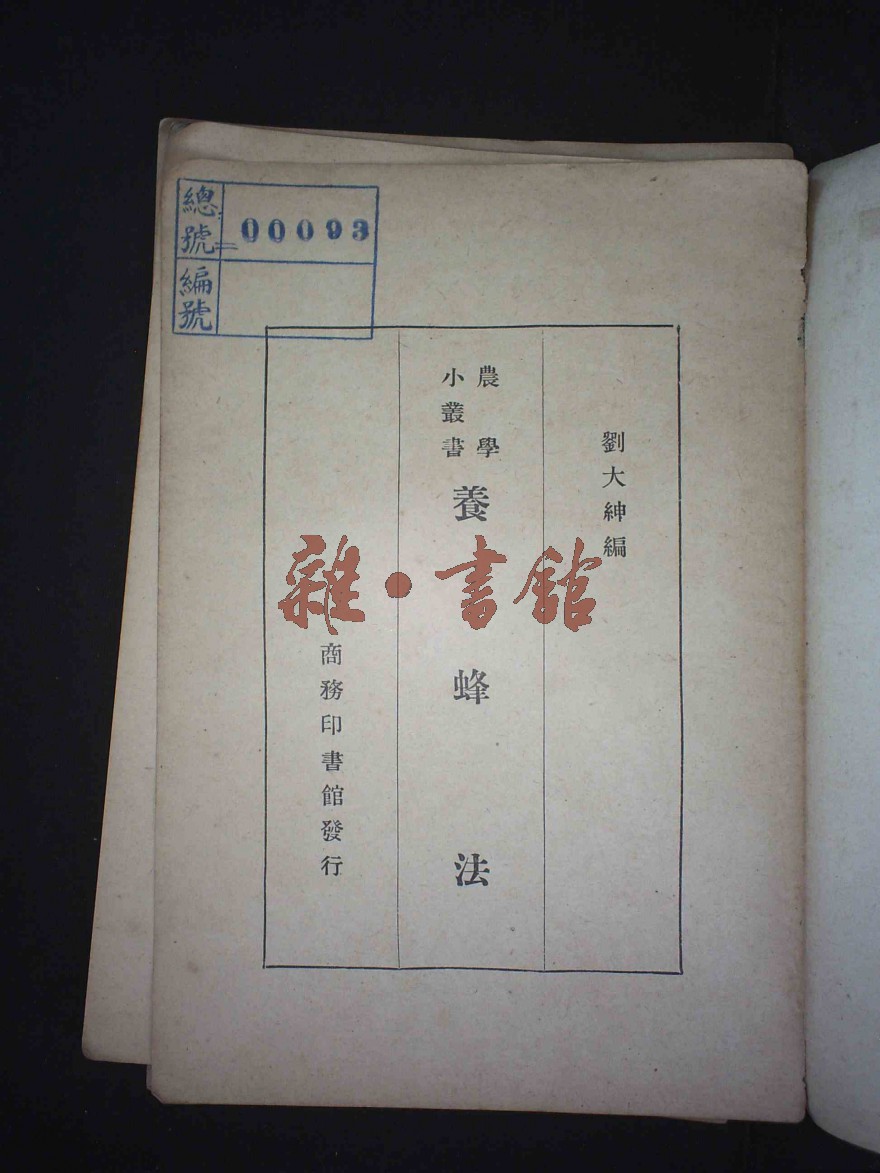 總號 00093
編號
劉大紳編
農學
小叢書
養蜂法
商務印書館發行
雜·書館